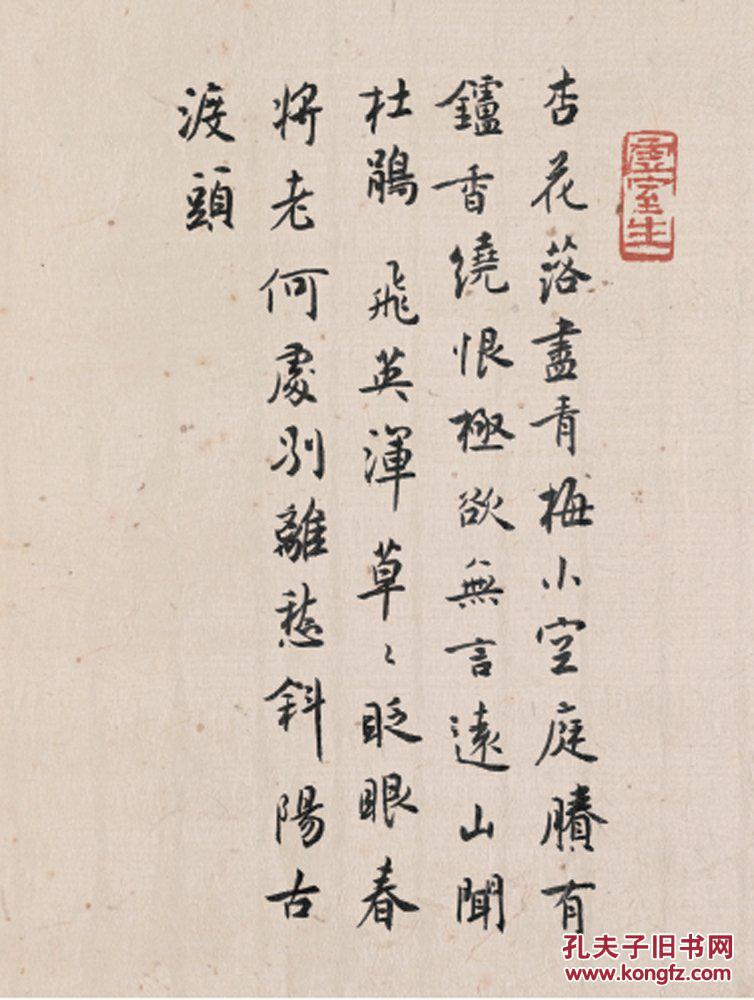 虛室生
杏花落盡青梅小空庭賸有
鑪香繞恨極欲無言遠山聞
杜鵑 飛英渾草〻眨眼春
將老何處別離愁斜陽古
渡頭
孔夫子旧书网
www.kongfz.com